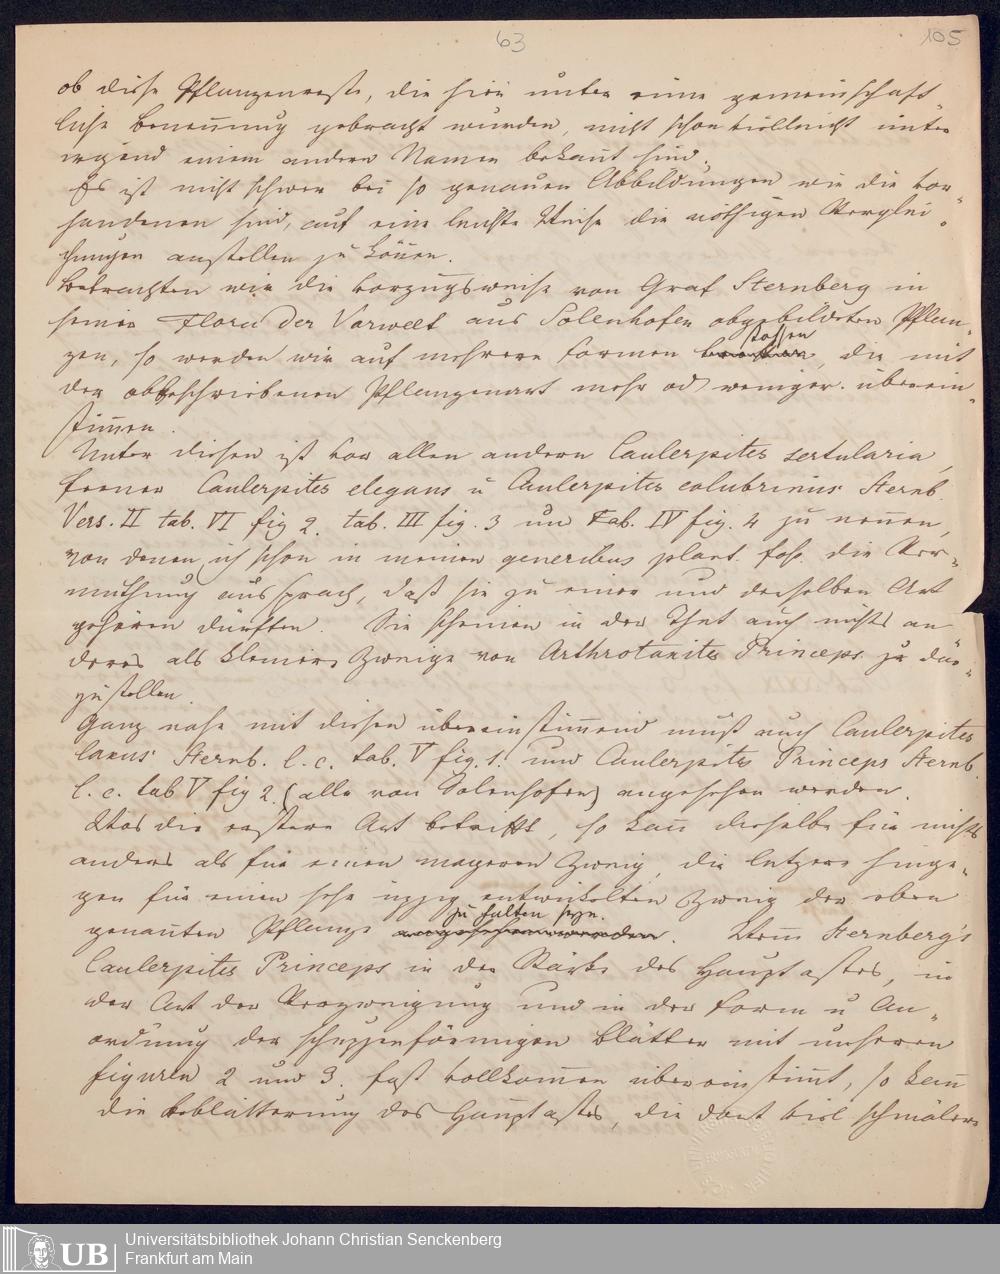 63
105
ob diese Pflanzenreste, die hier unter eine gemeinschaft„
liche Benennung gebracht wurden, nicht schon vielleicht unter
irgend einem andern Namen bekannt sind.
Es ist nicht schwer bei so genauen Abbildungen wie die vor„
handenen sind, auf eine leichte Weise die nöthigen Verglei„
chungen anstellen zu können.
Betrachten wir die vorzugsweise von Graf Sternberg in
seiner Flora der Vorwelt aus Solenhofen abgebildeten Pflan„
zen, so werden wir auf mehrere Formen stossen, die mit
der obbeschriebenen Pflanzenart mehr od weniger überein„
stimmen.
Unter diesen ist vor allen andern Caulerpites sertularia,
ferner Caulerpites elegans u Caulerpites colubrinus Sternb.
Vers. II tab. VI fig 2. tab. III fig. 3 und tab. IV fig. 4 zu nennen,
von denen ich schon in meinen generibus plant. foss. die Ver„
muthung aussprach, dass sie zu einer und derselben Art
gehören dürften. Sie scheinen in der That auch nichts an
deres als kleinere Zweige von Arthrotaxites Princeps zu dar„
zustellen.
Ganz nahe mit diesen übereinstimmend muss auch Caulerpites
laxus Sternb. l. c. tab. V fig. 1. und Caulerpites Princeps Sternb.
l. c. tab V fig 2. (alle von Solenhofen) angesehen werden.
Was die erstere Art betrifft, so kann dieselbe für nichts
anders als für einen mageren Zweig, die letzere hinge„
gen für einen sehr üppig entwickelten Zweig der oben
genannten Pflanze zu halten seyn. Wenn Sternberg's
Caulerpites Princeps in der Stärke des Hauptastes, in
der Art der Verzweigung und in der Form u An„
ordnung der schuppenförmigen Blätter mit unseren
Figuren 2 und 3. fast vollkommen übereinstimmt, so kann
die Beblätterung des Hauptastes, die dort viel schmälere
UB
Universitätsbibliothek Johann Christian Senckenberg
Frankfurt am Main